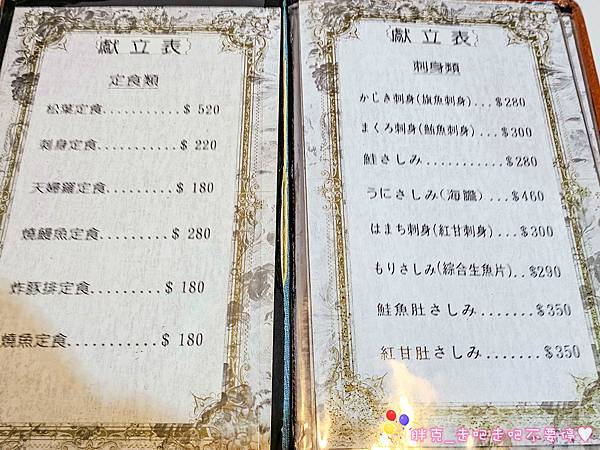 獻立表
定食類
松葉定食...........$ 520
刺身定食...........$ 220
天婦羅定食.........$ 180
燒鰻魚定食.........$ 280
炸豚排定食.........$ 180
燒魚定食...........$ 180
獻立表
刺身類
かじき刺身(旗魚刺身)...$280
まくろ刺身(鮪魚刺身)...$300
鮭さしみ...........$280
うにさしみ(海膽)...$460
はまち刺身(紅甘刺身)...$300
もりさしみ(綜合生魚片)..$290
鮭魚肚さしみ.......$350
紅甘肚さしみ.......$350
胖克_走吧走吧不要停♡